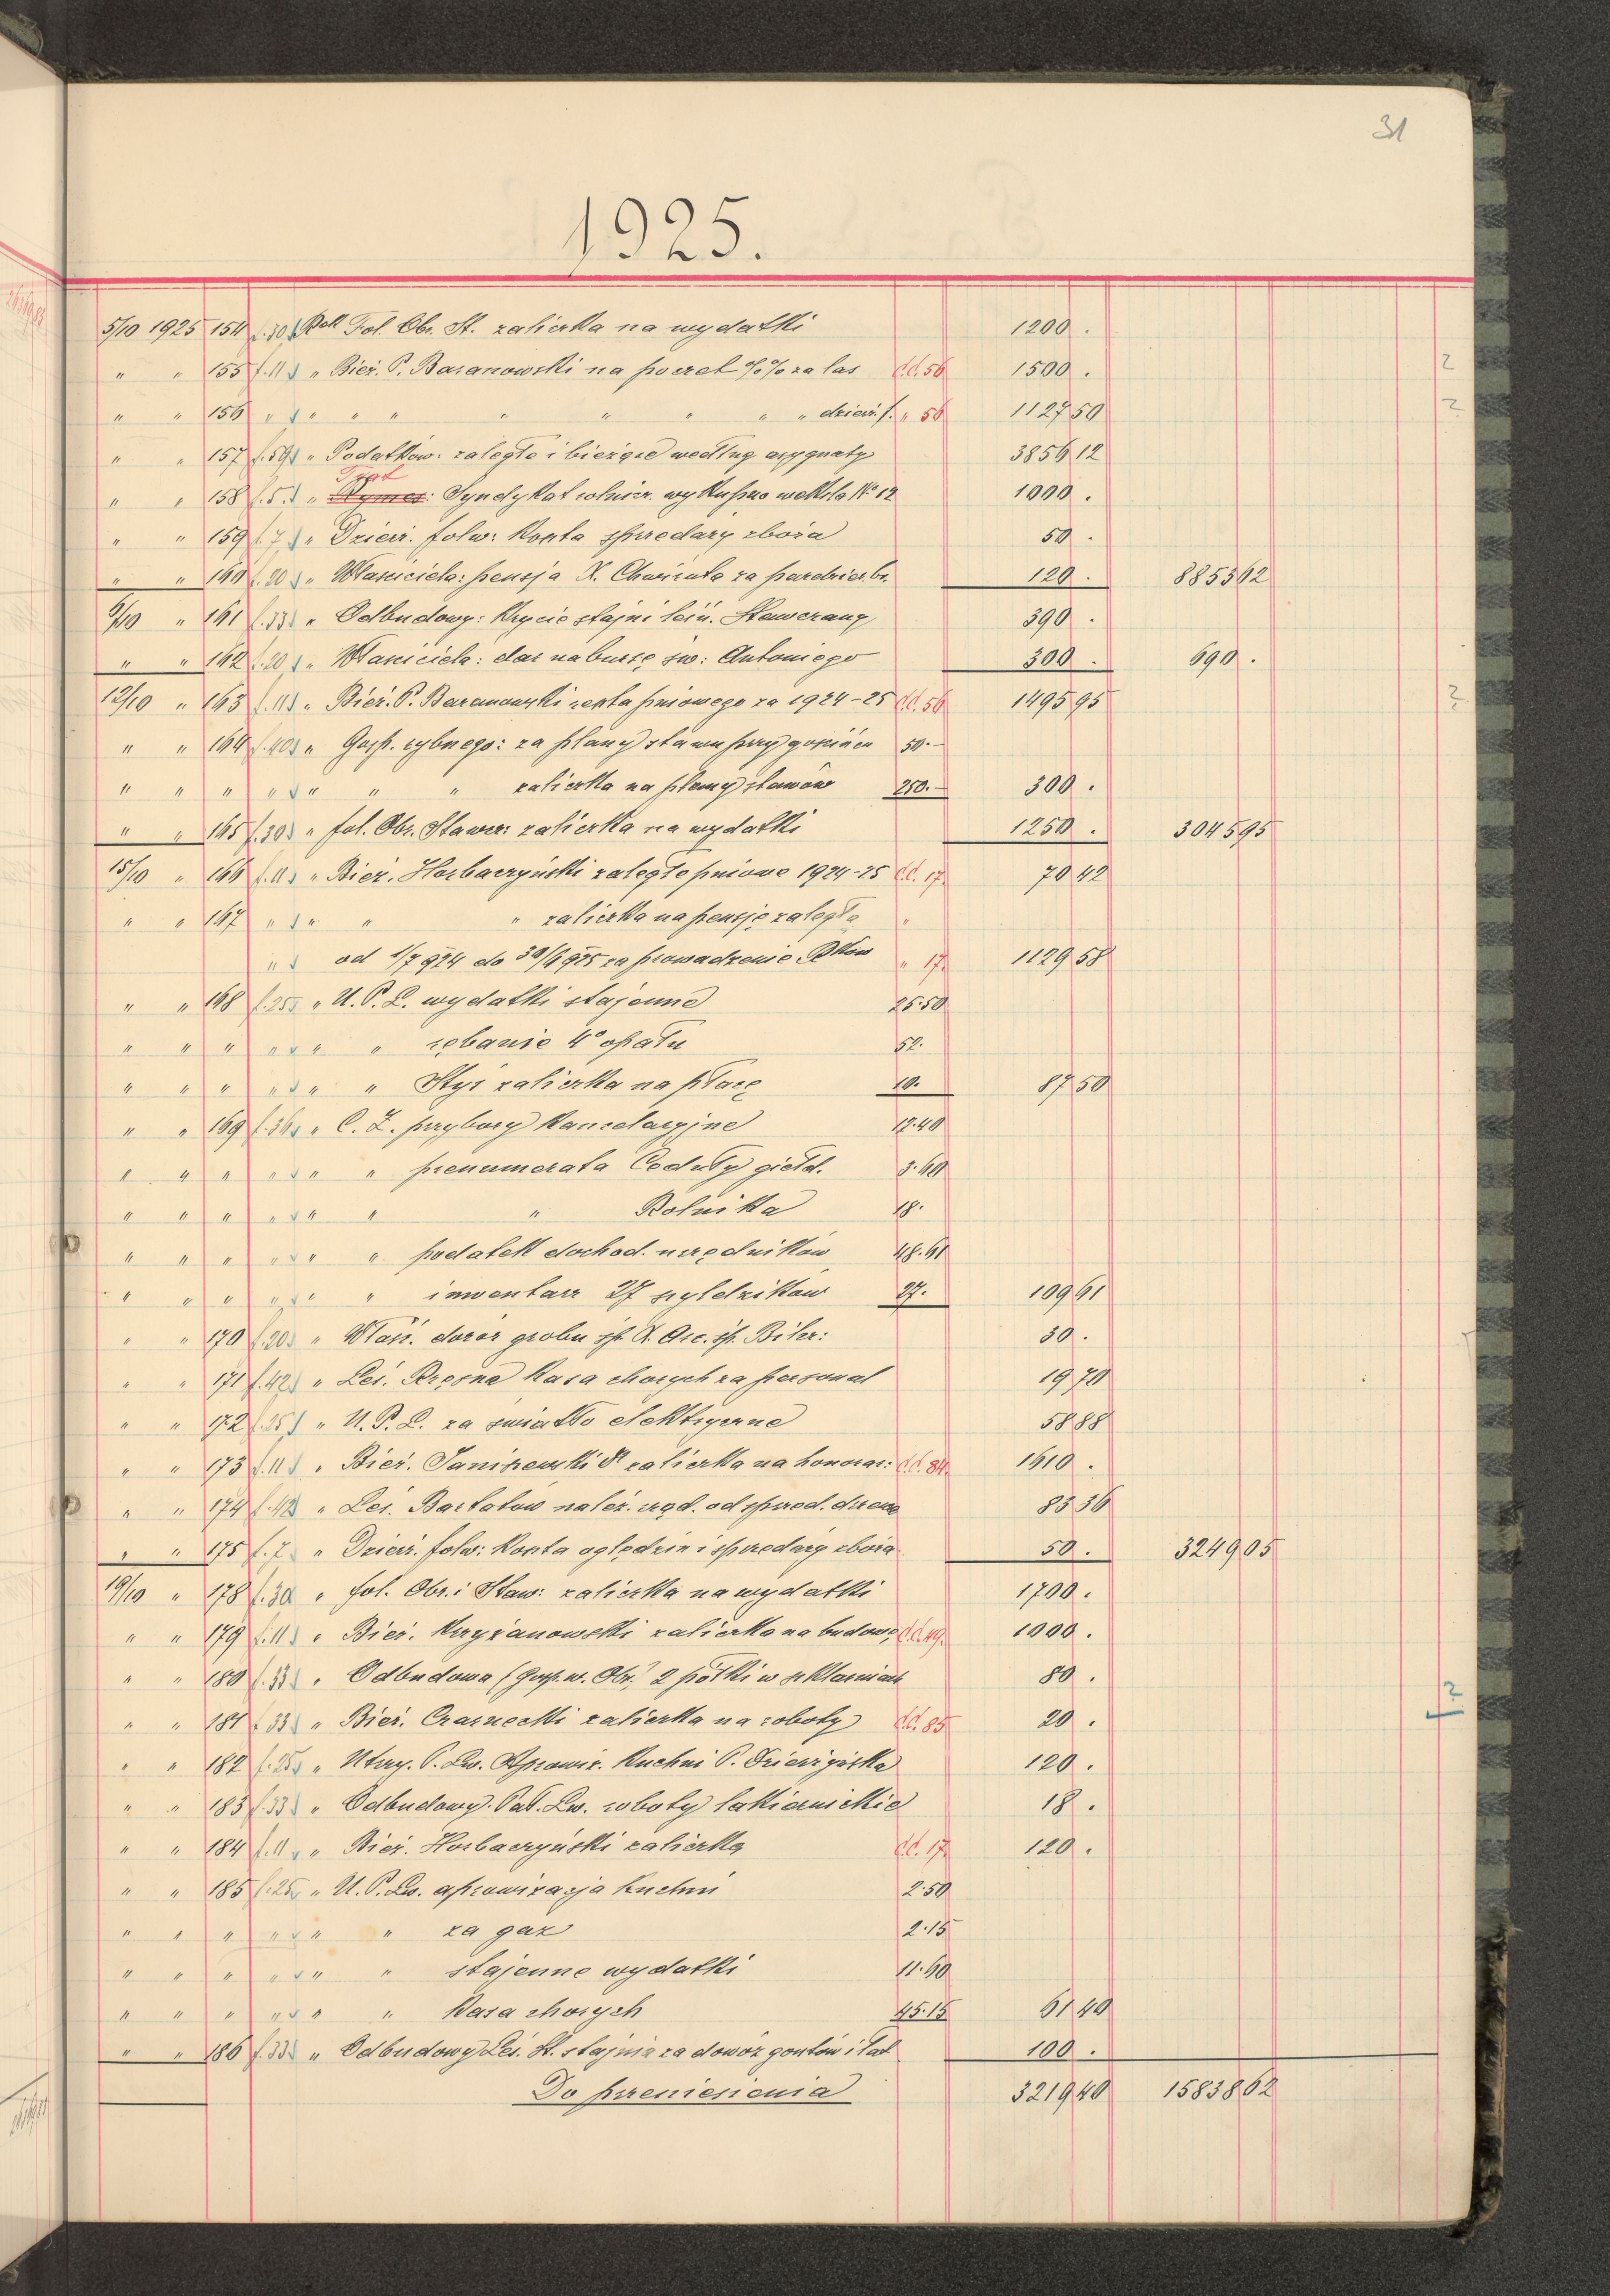 31
1925.
5/10 1925 154 f. 30 Rok Fol. Obr. St. zaliczka na wydatki 1200 .
" " 155 f. 11 " Bież. P. Baranowski na poczet %% za las d.d. 56 1500 .
" " 156 " " " " " " " " " dzierż. f. " 56 1127 50
" " 157 f. 59 " Podatków: zaległe i bieżące według asygnaty 3856 12
" " 158 f. 5. " Tyt Rymes: Syndykat rolnicz. wykupno weksla No 12 1000 .
" " 159 f. 7 " Dzierż. folw: Koszta sprzedaży zboża 50 .
" " 160 f. 20 " Właściciela: pensja X. za paździer. br. 120 . 8853 62
6/10 " 161 f. 33 " Odbudowy: Krycie stajni leśn. Stawczany 390 .
" " 162 f. 20 " Właściciela: dar na bursę św: Antoniego 300 . 690 .
12/10 " 163 f. 11 " Bież. P. Baranowski reszta pniowego za 1924-25 d.d. 56 1495 95
" " 164 f. 40 " Gosp. rybnego: za plany stawu przy gościńcu 50.-
" " " " " " " zaliczka na plany stawów 250.- 300 .
" " 165 f. 30 " fol. Obr. Stawcz: zaliczka na wydatki 1250 . 3045 95
15/10 " 166 f. 11 " Bież. Horbaczyński zaległe pniowe 1924-25 d.d. 17. 70 42
" " 167 " " " " zaliczka na pensję zaległą "
" od 1/7 924 do 30/6 925 za prowadzenie Rków " 17. 1129 58
" " 168 f. 25 " U. P. L. wydatki stajenne 25.50
" " " " " " rębanie 4° opału 52.
" " " " " " Styś zaliczka na płacę 10. 87 50
" " 169 f. 36 " C. Z. przybory kancelaryjne 12.40
" " " " " " prenumerata Ceduły giełd. 3.60
" " " " " " " Rolnika 18.
" " " " " " podatek dochod. urzędników 48.61
" " " " " " inwentarz 27 szyldzików 27. 109 61
" " 170 f. 20 " Właś. dozór grobu śp. X. Arc. śp. Bilcz: 30 .
" " 171 f. 42 " Leś. Rzęsna kasa chorych za personal 19 70
" " 172 f. 25 " U. P. L. za światło elektryczne 58 88
" " 173 f. 11 " Bież. Janiszewski Dr zaliczka na honorar: d.d. 84. 1610 .
" " 174 f. 42 " Leś. Bartatów należ. rząd. od sprzed. drzewa 83 36
" " 175 f. 7 " Dzierż. folw: Koszta oględzin i sprzedaży zboża 50 . 3249 05
19/10 " 178 f. 30 " fol. Obr. i Staw: zaliczka na wydatki 1700 .
" " 179 f. 11 " Bież. Krzyżanowski zaliczka na budowę d.d. 49. 1000 .
" " 180 f. 33 " Odbudowa (Gosp. w. Obr.) 2 półki w szklarniach 80 .
" " 181 f. 33 " Bież. Czarnecki zaliczka na roboty d.d. 85 20 .
" " 182 f. 25 " Utrzy. P. Lw. Aprowiz. Kuchni P. 120 .
" " 183 f. 33 " Odbudowy. Pał. Lw. roboty lakiernickie 18 .
" " 184 f. 11 " Bież. Horbaczyński zaliczka d.d. 17 120 .
" " 185 f. 25 " U. P. Lw. aprowizacja kuchni 2.50
" " " " " " za gaz 2.15
" " " " " " stajenne wydatki 11.60
" " " " " " Kasa chorych 45.15 61 40
" " 186 f. 33 " Odbudowy Leś. St. stajnia za dowóz gontów i łat 100 .
Do przeniesienia 3219 40 15838 62